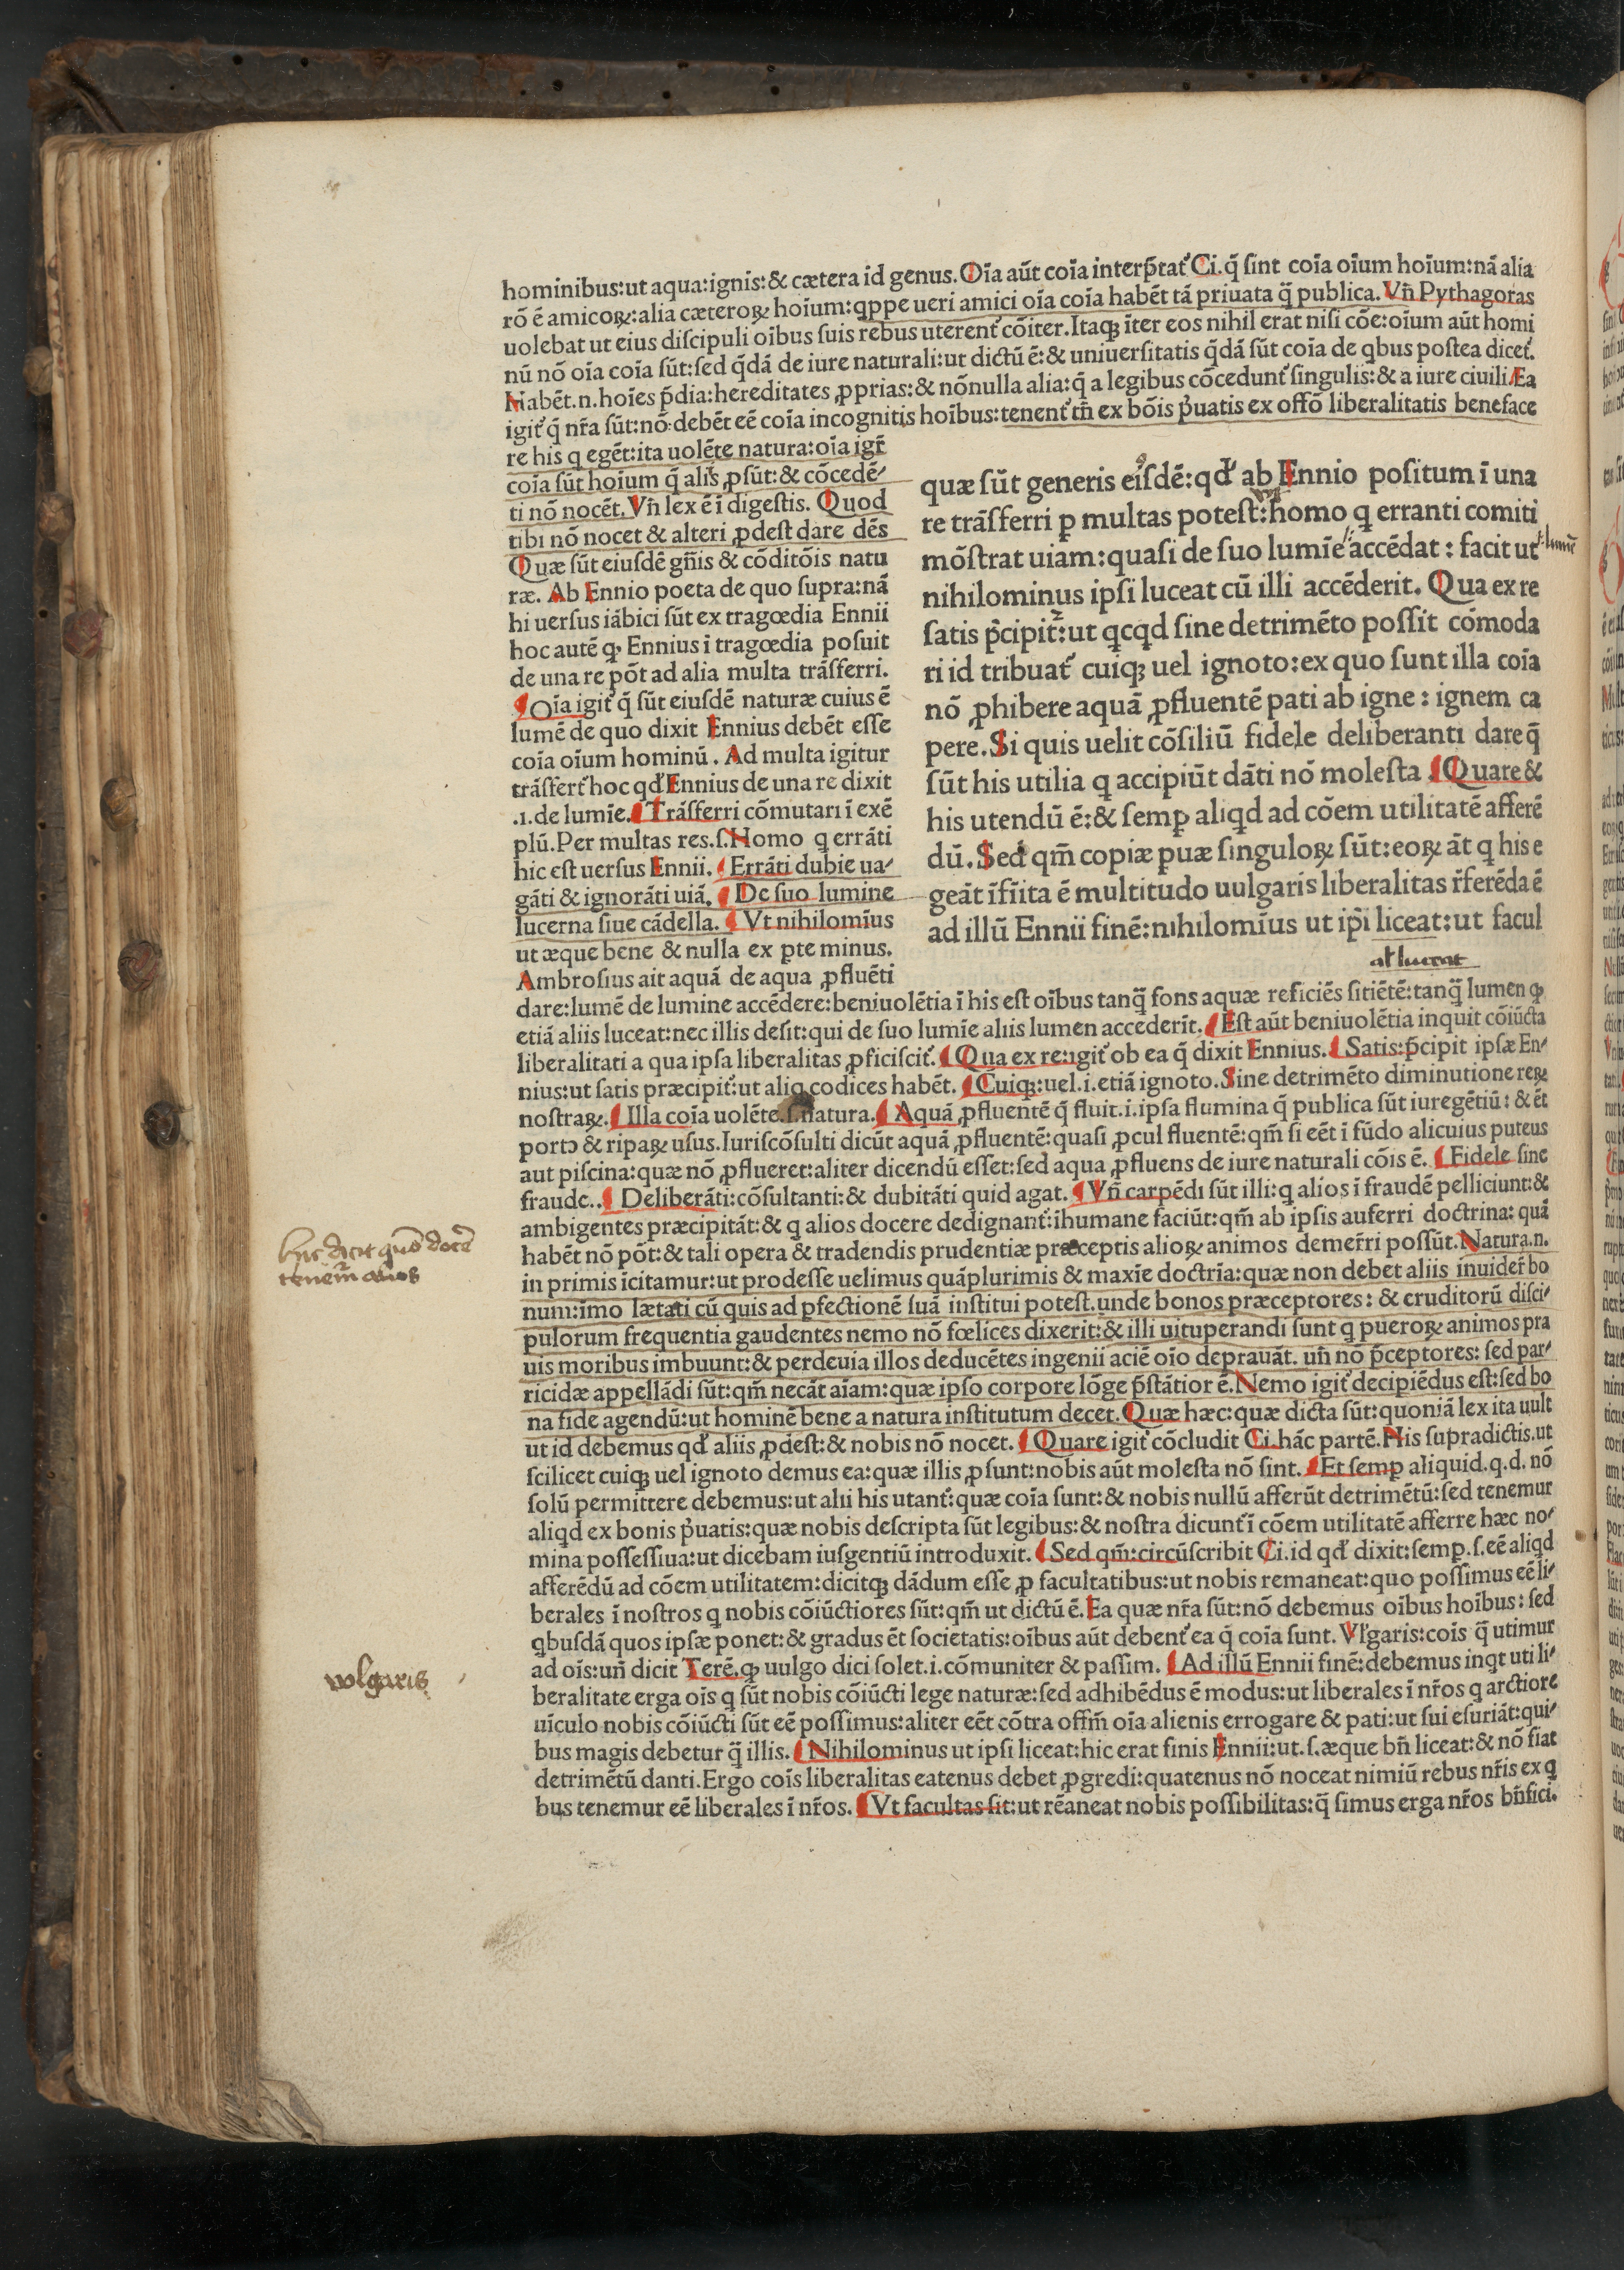 hominibus:ut aqua:ignis:& cætera id genus. Oĩa aũt coĩa interp̃tat᷑ Ci.q̃ ſint coĩa oĩum hoĩum:nã alia
rõ ẽ amicoꝝ:alia cæteroꝝ hoĩum:qppe ueri amici oĩa coĩa habẽt tã priuata q̃ publica. Vñ Pythagoras
uolebat ut eius diſcipuli oĩbus ſuis rebus uterent᷑ cõiter. Itaqꝫ ĩter eos nihil erat niſi cõe:oĩum aũt homi
nũ nõ oĩa coĩa ſũt:ſed q̃dã de iure naturali:ut dictũ ẽ:& uniuerſitatis q̃dã ſũt coĩa de qbus poſtea dicet᷑.
Habẽt.n.hoĩes p̃dia:hereditates ꝓprias:& nõnulla alia:q̃ a legibus cõcedunt᷑ ſingulis:& a iure ciuili Ea
igit᷑ q̃ nr̃a ſũt:nõ debẽt eẽ coĩa incognitis hoĩbus:tenent᷑ tñ ex bõis p̃uatis ex offõ liberalitatis beneface
re his q egẽt:ita uolẽte natura:oĩa igr̃
coĩa ſũt hoĩum q̃ aliis ꝓſũt:& cõcedẽ⸗
ti nõ nocẽt. Vñ lex ẽ ĩ digeſtis. Quod
tibi nõ nocet & alteri ꝓdeſt dare dẽs
Quæ ſũt eiuſdẽ gñis & cõditõis natu
ræ. Ab Ennio poeta de quo ſupra:nã
hi uerſus iãbici ſũt ex tragœdia Ennii
hoc autẽ ꝙ Ennius ĩ tragœdia poſuit
de una re põt ad alia multa trãſferri.
¶ Oĩa igit᷑ q̃ ſũt eiuſdẽ naturæ cuius ẽ
lumẽ de quo dixit Ennius debẽt eſſe
coĩa oĩum hominũ. Ad multa igitur
trãſfert᷑ hoc qd᷑ Ennius de una re dixit
.i.de lumĩe. ¶ Trãſferri cõmutari ĩ exẽ
plũ. Per multas res.ſ. Homo q errãti
hic eſt uerſus Ennii. ¶ Errãti dubie ua⸗
gãti & ignorãti uiã. ¶ De ſuo lumine
lucerna ſiue cãdella. ¶ Vt nihilomĩus
ut æque bene & nulla ex ꝑte minus.
Ambroſius ait aquã de aqua ꝓfluẽti
quæ ſũt generis eiſdẽ:qd᷑ ab Ennio poſitum ĩ una
re trãſferri ꝑ multas poteſt:homo q erranti comiti
mõſtrat uiam:quaſi de ſuo lumĩe accẽdat : facit ut
nihilominus ipſi luceat cũ illi accẽderit. Qua ex re
ſatis p̃cipit᷑:ut qcqd ſine detrimẽto poſſit cõmoda
ri id tribuat᷑ cuiqꝫ uel ignoto:ex quo ſunt illa coĩa
nõ ꝓhibere aquã ꝓfluentẽ pati ab igne : ignem ca
pere. Si quis uelit cõſiliũ fidele deliberanti dare q̃
ſũt his utilia q accipiũt dãti nõ moleſta ¶ Quare &
his utendũ ẽ:& ſemꝑ aliqd ad cõem utilitatẽ afferẽ
dũ. Sed qm̃ copiæ puæ ſinguloꝝ ſũt:eoꝝ ãt q his e
geãt ĩfĩita ẽ multitudo uulgaris liberalitas r̃ferẽda ẽ
ad illũ Ennii finẽ:nihilomĩus ut ip̃i liceat:ut facul
al luceat
dare:lumẽ de lumine accẽdere:beniuolẽtia ĩ his eſt oĩbus tanq̃ fons aquæ reficiẽs ſitiẽtẽ:tanq̃ lumen ꝙ
etiã aliis luceat:nec illis deſit:qui de ſuo lumĩe aliis lumen accederĩt. ¶ Eſt aũt beniuolẽtia inquit cõiũcta
liberalitati a qua ipſa liberalitas ꝓficiſcit᷑. ¶ Qua ex re:igit᷑ ob ea q̃ dixit Ennius. ¶ Satis:p̃cipit ipſæ En⸗
nius:ut ſatis præcipit᷑:ut aliq codices habẽt. ¶ Cuiqꝫ:uel.i.etiã ignoto. Sine detrimẽto diminutione reꝝ
noſtraꝝ. ¶ Illa coĩa uolẽte.ſ.natura. ¶ Aquã ꝓfluentẽ q̃ fluit.i.ipſa flumina q̃ publica ſũt iuregẽtiũ: & ẽt
portɔ & ripaꝝ uſus. Iuriſcõſulti dicũt aquã ꝓfluentẽ:quaſi ꝓcul fluentẽ:qm̃ ſi eẽt ĩ fũdo alicuius puteus
aut piſcina:quæ nõ ꝓflueret:aliter dicendũ eſſet:ſed aqua ꝓfluens de iure naturali cõis ẽ. ¶ Fidele ſine
fraude.. ¶ Deliberãti:cõſultanti:& dubitãti quid agat. ¶ Vñ carpẽdi ſũt illi:q alios ĩ fraudẽ pelliciunt:&
ambigentes præcipitãt:& q alios docere dedignant᷑:ĩhumane faciũt:qm̃ ab ipſis auferri doctrina: quã
habẽt nõ põt:& tali opera & tradendis prudentiæ præceptis alioꝝ animos demer̃ri poſſũt. Natura.n.
in primis ĩcitamur:ut prodeſſe uelimus quãplurimis & maxĩe doctrĩa:quæ non debet aliis inuider̃ bo
num:ĩmo lætati cũ quis ad ꝑfectionẽ ſuã inſtitui poteſt.unde bonos præceptores: & eruditorũ diſci⸗
pulorum frequentia gaudentes nemo nõ fœlices dixerit:& illi uituperandi ſunt q pueroꝝ animos pra
uis moribus imbuunt:& perdeuia illos deducẽtes ingenii aciẽ oĩo deprauãt. uñ nõ p̃ceptores: ſed par⸗
ricidæ appellãdi ſũt:qm̃ necãt aĩam:quæ ipſo corpore lõge p̃ſtãtior ẽ. Nemo igit᷑ decipiẽdus eſt:ſed bo
na fide agendũ:ut hominẽ bene a natura inſtitutum decet. Quæ hæc:quæ dicta ſũt:quoniã lex ita uult
ut id debemus qd᷑ aliis ꝓdeſt:& nobis nõ nocet. ¶ Quare igit᷑ cõcludit Ci.hãc partẽ. His ſupradictis.ut
ſcilicet cuiqꝫ uel ignoto demus ea:quæ illis ꝓſunt:nobis aũt moleſta nõ ſint. ¶ Et ſemꝑ aliquid.q.d. nõ
ſolũ permittere debemus:ut alii his utant᷑:quæ coĩa ſunt:& nobis nullũ afferũt detrimẽtũ:ſed tenemur
aliqd ex bonis p̃uatis:quæ nobis deſcripta ſũt legibus:& noſtra dicunt᷑ ĩ cõem utilitatẽ afferre hæc no⸗
mina poſſeſſiua:ut dicebam iuſgentiũ introduxit. ¶ Sed qm̃:circũſcribit Ci.id qd᷑ dixit:ſemꝑ.ſ.eẽ aliqd
afferẽdũ ad cõem utilitatem:dicitqꝫ dãdum eſſe ꝓ facultatibus:ut nobis remaneat:quo poſſimus eẽ li⸗
berales ĩ noſtros q nobis cõiũctiores ſũt:qm̃ ut dictũ ẽ. Ea quæ nr̃a ſũt:nõ debemus oĩbus hoĩbus: ſed
qbuſdã quos ipſæ ponet:& gradus ẽt ſocietatis:oĩbus aũt debent᷑ ea q̃ coĩa ſunt. Vlgaris:cois q̃ utimur
ad oĩs:uñ dicit Terẽ.ꝙ uulgo dici ſolet.i.cõmuniter & paſſim. ¶ Ad illũ Ennii finẽ:debemus inqt uti li⸗
beralitate erga oĩs q ſũt nobis cõiũcti lege naturæ:ſed adhibẽdus ẽ modus:ut liberales ĩ nr̃os q arctiore
uĩculo nobis cõiũcti ſũt eẽ poſſimus:aliter eẽt cõtra offm̃ oĩa alienis errogare & pati:ut ſui eſuriãt:qui⸗
bus magis debetur q̃ illis. ¶ Nihilominus ut ipſi liceat:hic erat finis Ennii:ut.ſ.æque bñ liceat:& nõ fiat
detrimẽtũ danti. Ergo coĩs liberalitas eatenus debet ꝓgredi:quatenus nõ noceat nimiũ rebus nr̃is ex q
bus tenemur eẽ liberales ĩ nr̃os. ¶ Vt facultas ſit:ut rẽaneat nobis poſſibilitas:q̃ ſimus erga nr̃os bñfici.
hic dicit quõ docẽ
tenem̃ alios
volgaris